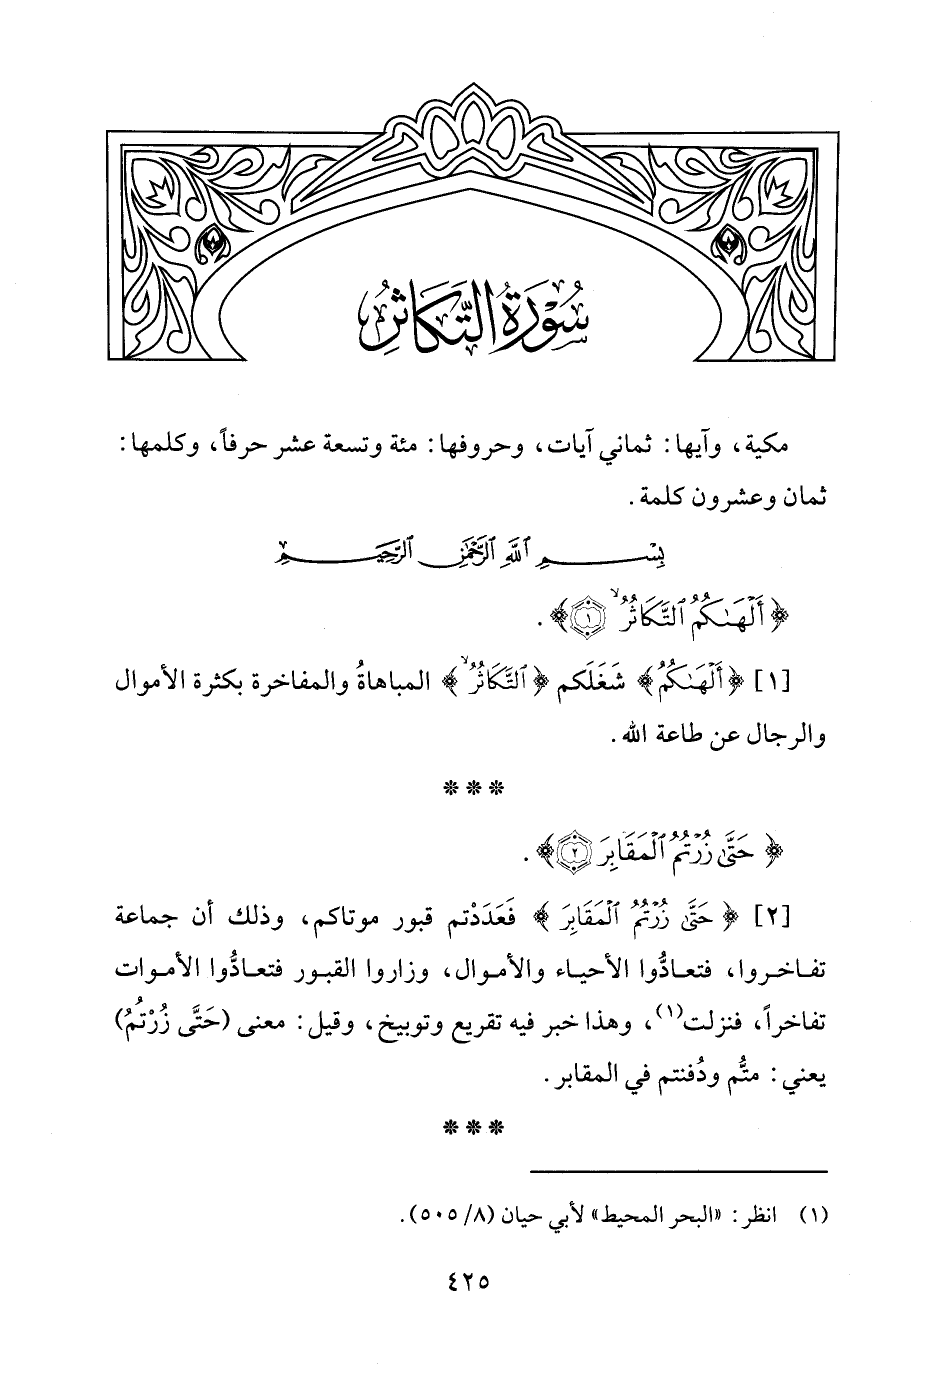 سُوْرَةُ التَّكَاثُرِ
مكية، وآيها: ثماني آيات، وحروفها: مئة وتسعة عشر حرفاً، وكلمها:
ثمان وعشرون كلمة.
بِسْمِ ٱللَّهِ ٱلرَّحْمَٰنِ ٱلرَّحِيمِ
﴿أَلْهَىٰكُمُ ٱلتَّكَاثُرُ ۙ ١﴾.
[١] ﴿أَلْهَىٰكُمُ﴾ شَغَلَكم ﴿ٱلتَّكَاثُرُ ۙ﴾ المباهاةُ والمفاخرة بكثرة الأموال
والرجال عن طاعة الله.
***
﴿حَتَّىٰ زُرْتُمُ ٱلْمَقَابِرَ ٢﴾.
[٢] ﴿حَتَّىٰ زُرْتُمُ ٱلْمَقَابِرَ﴾ فَعَدَدْتم قبور موتاكم، وذلك أن جماعة
تفاخروا، فتعادُّوا الأحياء والأموال، وزاروا القبور فتعادُّوا الأموات
تفاخراً، فنزلت(١)، وهذا خبر فيه تقريع وتوبيخ، وقيل: معنى (حَتَّى زُرْتُمُ)
يعني: متُّم ودُفنتم في المقابر.
***
(١) انظر: «البحر المحيط» لأبي حيان (٨/ ٥٠٥).
٤٢٥